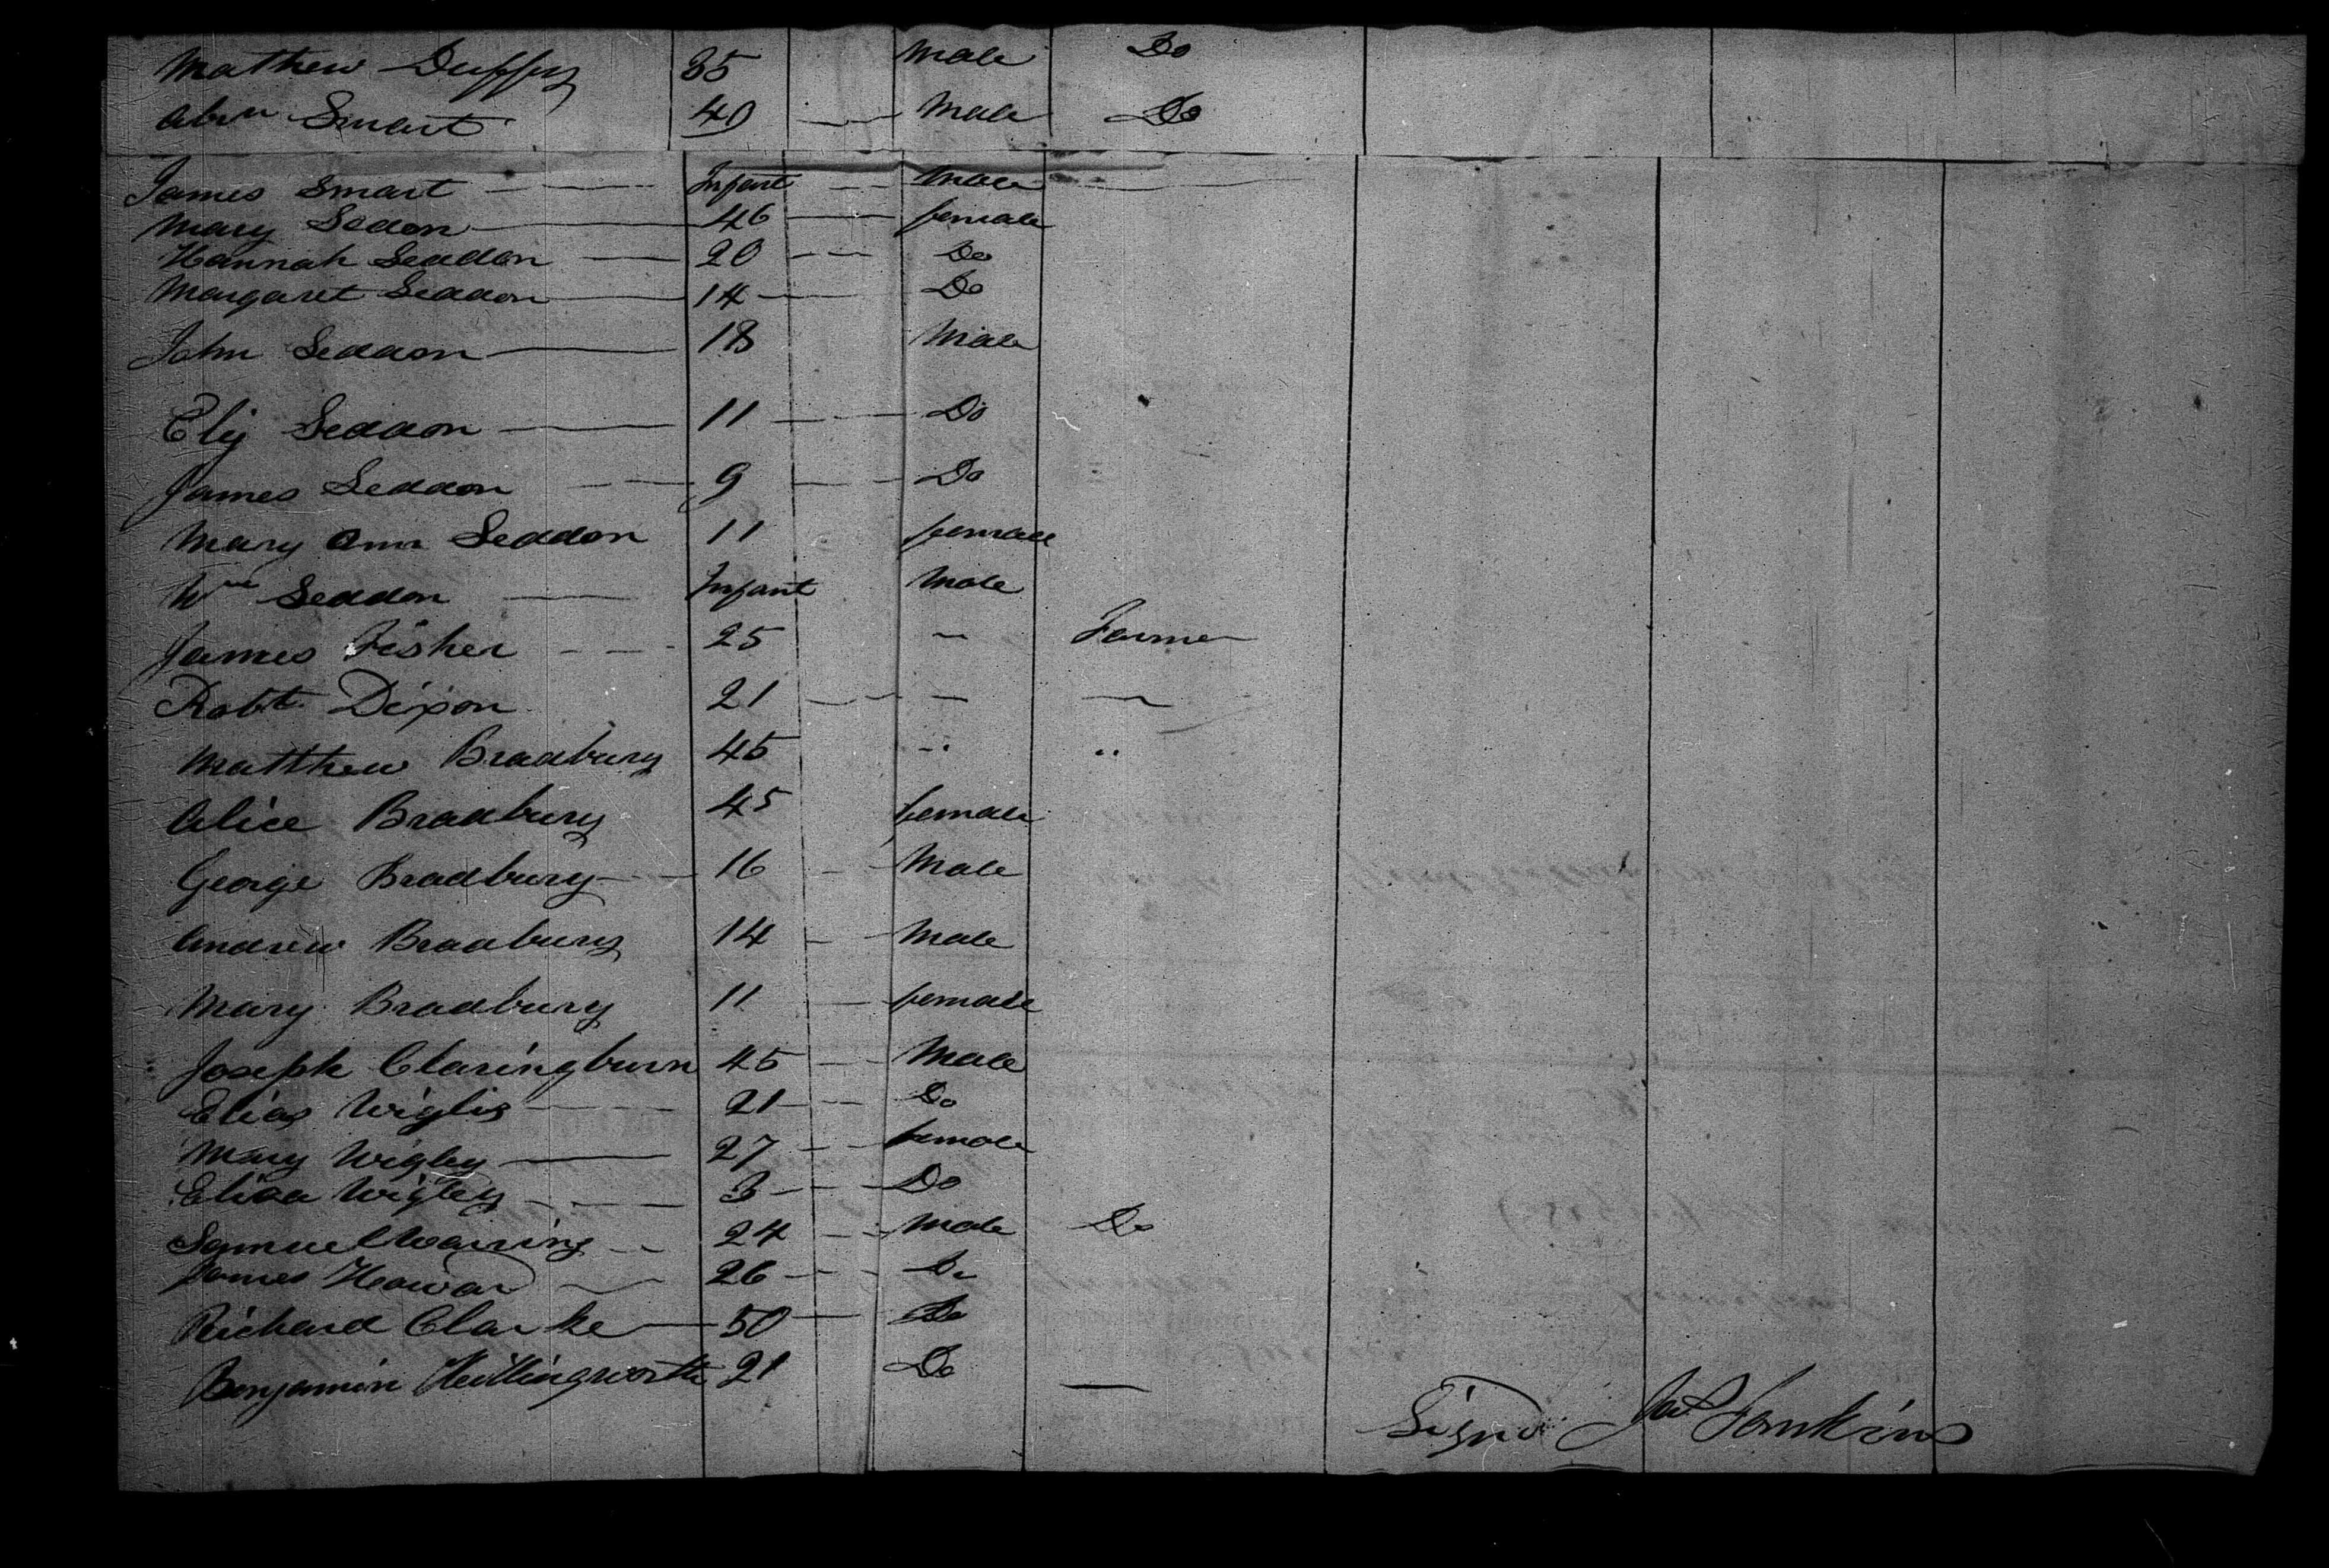 Mathew Duffy 35 Male Do
Abrm Smart 40 Male Do
James Smart Infant Male
Mary Sedon 46 female
Hannah Seddon 20 Do
Margaret Seddon 14 Do
John Seddon 18 Male
Ely Seddon 11 Do
James Seddon 9 Do
Mary Ann Seddon 11 female
Wm Seddon Infant Male
James Fisher 25 Farmer
Robt Dixon 21
Matthew Bradbury 45 " "
Alice Bradbury 45 female
George Bradbury 16 Male
Andrew Bradbury 14 Male
Mary Bradbury 11 female
Joseph Claringburn 45 Male
Elias Wigley 21 Do
Mary Wigley 27 female
Eliza Wigley 3 Do
Samuel Wairing 24 Male Do
James Howard 26 Do
Richard Clarke 50 Do
Benjamin 21 Do
Signd Jas Tomkins